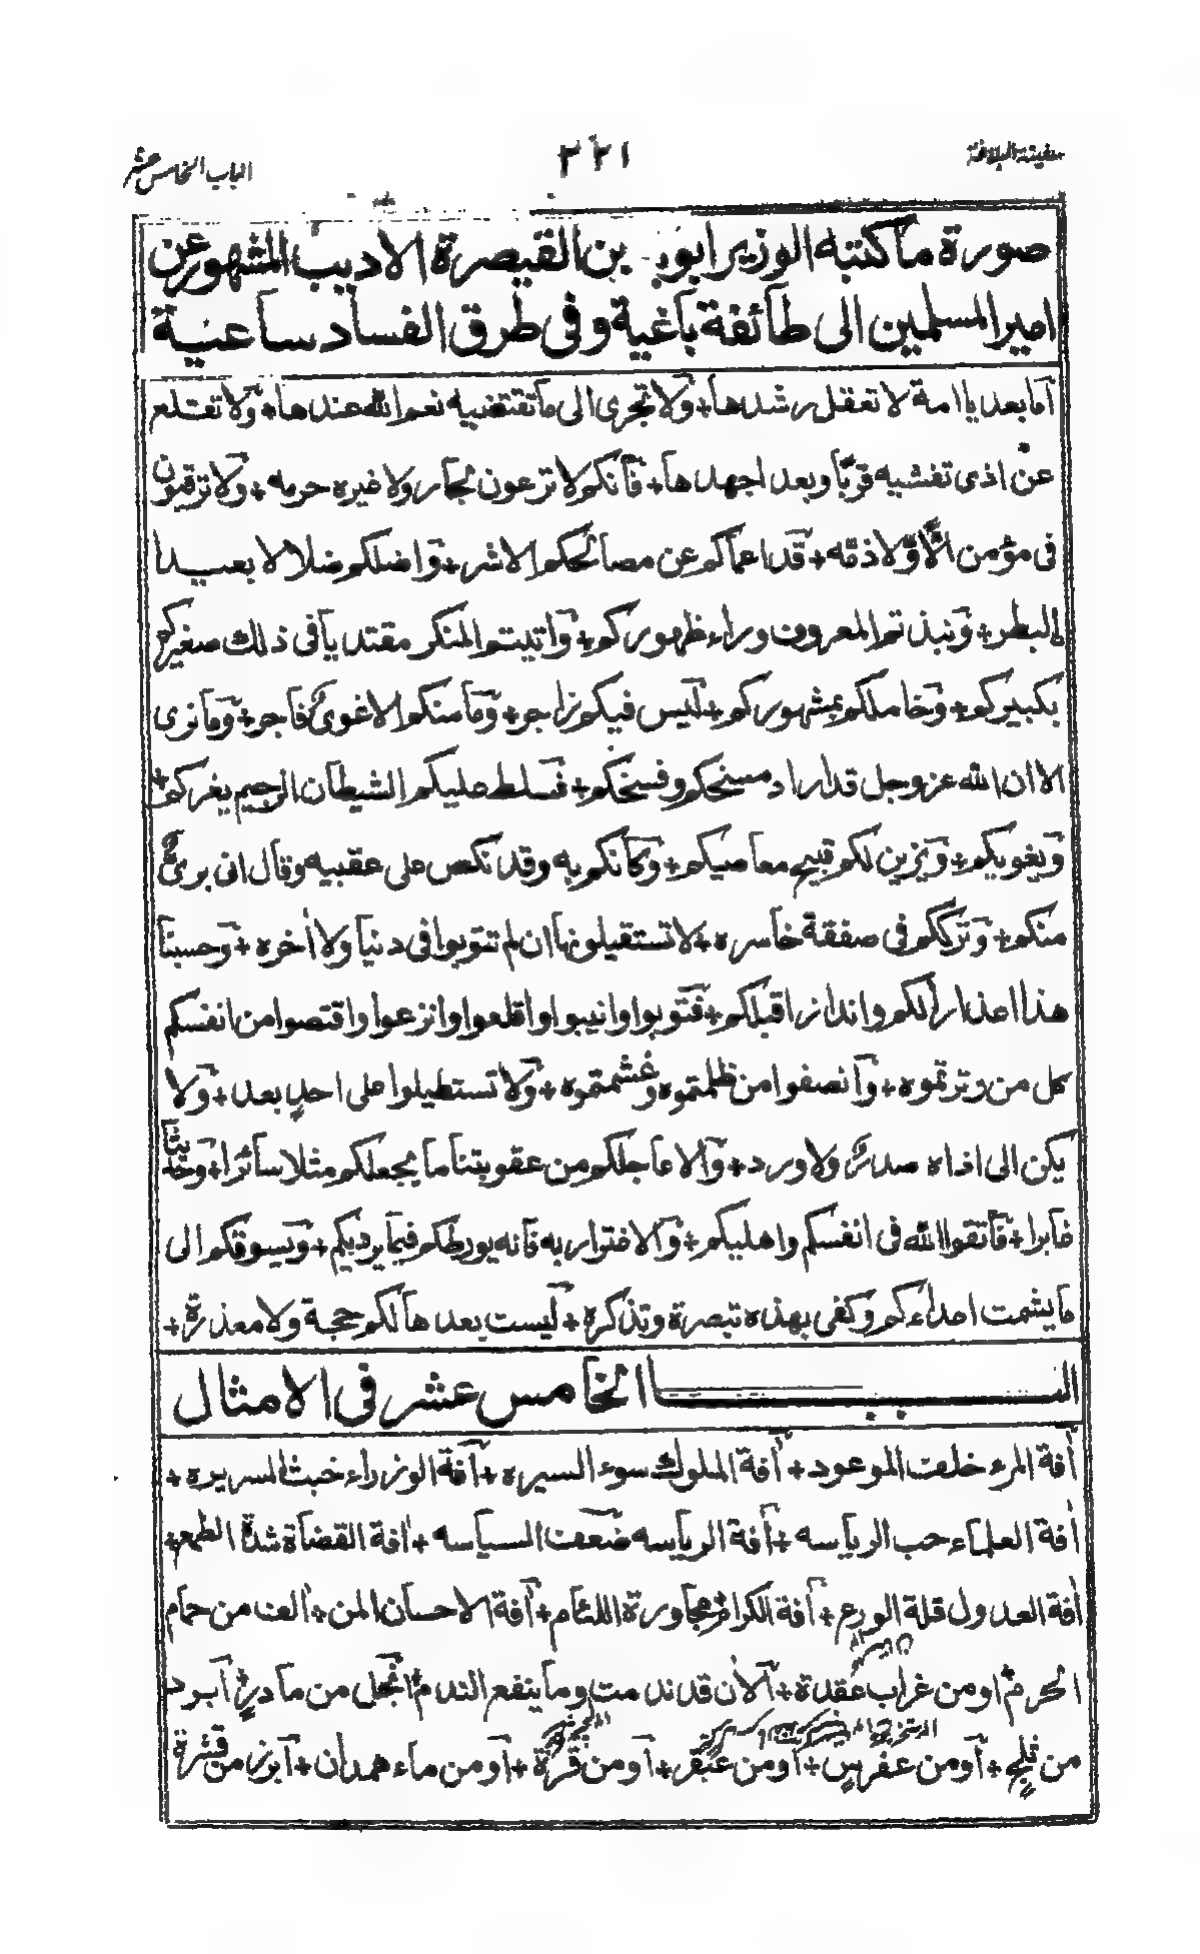 سفينة البلاغة
٣٢١
الباب الخامس عشر
صورة ما كتبه الوزير ابو بن القيصرة الاديب المشهور عن
امير المسلمين الى طائفة باغية وفى طرق الفساد ساعية
اما بعد يا امة لا تعقل رشدها + ولا تجرى الى ما تقتضيه نعم الله عندها + ولا تقلع
عن اذى تفشيه قربا وبعدا جهدها + فانكم لا ترعون لجار ولا غيره حرمه + ولا ترقبون
فى مؤمن الّا ولا ذمّه + قد اعماكم عن مصالحكم الاشر + واضلكم ضلالا بعيدا
البطر + ونبذتم المعروف وراء ظهوركم + واتيتم المنكر مقتديا فى ذلك صغيركم
بكبيركم + وخاملكم بمشهوركم + ليس فيكم زاجر + وما منكم الا غوى فاجر + وما نرى
الا ان الله عز وجل قد اراد مسخكم وفسخكم + فسلط عليكم الشيطان الرجيم يغركم +
ويغويكم + ويزين لكم قبيح معاصيكم + وكانكم به وقد نكص على عقبيه وقال انى برئ
منكم + وترككم فى صفقة خاسره + لا تستقيلونها ان لم تتوبوا فى دنيا ولا أخره + وحسبنا
هذا اعذارا لكم وانذارا قبلكم + فتوبوا وانيبوا واقلعوا وانزعوا واقتصوا من انفسكم
كل من وترتموه + وانصفوا من ظلمتموه وغشمتموه + ولا تستطيلوا على احدٍ بعد + ولا
يكن الى اذاه صدر ولا ورد + والا عاجلكم من عقوبتنا ما يجعلكم مثلا سائرا + وحديثا
غابرا + فاتقوا الله فى انفسكم واهليكم + والاغترار به فانه يورطكم فيما يرديكم + ويسوقكم الى
ما يشمت اعداءكم وكفى بهذه تبصرة وتذكرة + ليست بعدها لكم حجة ولا معذرة +
البـــاب الخامس عشر فى الامثال
أفة المرء خلف الموعود + أفة الملوك سوء السيره + أفة الوزراء خبث السريره +
أفة العلماء حب الرياسه + أفة الرياسه ضعف السياسه + افة القضاة شدة الطمع +
أفة العدول قلة الورع + أفة الكرام مجاورة اللئام + أفة الاحسان المن + ألف من حمام
الحرم او من غراب عقدة + الأن قد ندمت وما ينفع الندم أبخل من مادرٍ أبرد
من ثلجٍ + أو من عفرسٍ + أو من عبقر + أو من قرّة + أو من ماء همدان + أبرز من قشرة